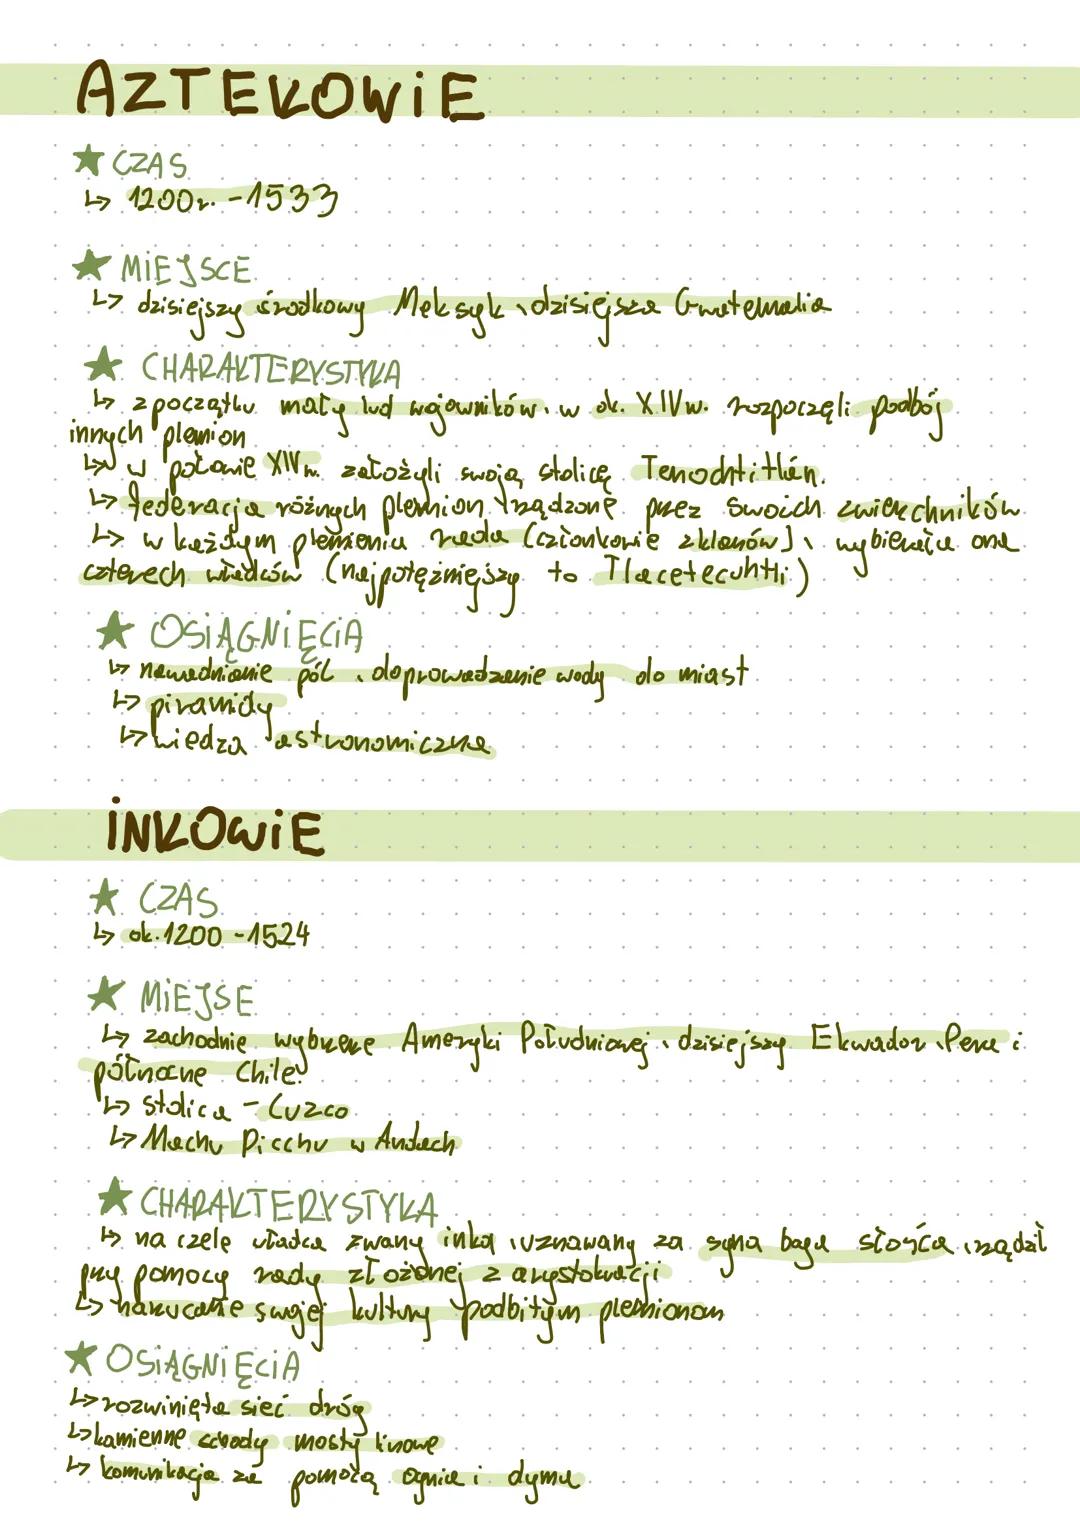 AZTEKOWiE
CZAS
↳ 1200r. - 1533
MiEJSCE
↳ dzisiejszy środkowy Meksyk, dzisiejsza Gwatemalia
CHARAKTERYSTYKA
↳ z początku mały lud wojowników, w ok. XIVw. rozpoczęli podbój
innych plemion
↳ w połowie XIVw. założyli swoją stolicę Tenochtitlán.
↳ federacja różnych plemion rządzone przez swoich zwierzchników
↳ w każdym plemieniu rada (członkowie z klanów), wybierała ona
czterech władców (najpotężniejszy to Tlacetecuhtli)
OSiĄGNiĘCiA
↳ nawodnianie pól, doprowadzanie wody do miast
↳ piramidy
↳ wiedza astronomiczna
iNKOWiE
CZAS
↳ ok. 1200 - 1524
MiEJSE
↳ zachodnie wybrzeże Ameryki Południowej, dzisiejszy Ekwador, Peru i
północne Chile.
↳ stolica - Cuzco
↳ Machu Picchu w Andach
CHARAKTERYSTYKA
↳ na czele władca zwany inką, uznawany za syna boga słońca, rządził
przy pomocy rady złożonej z arystokracji
↳ narzucanie swojej kultury podbitym plemionom
OSiĄGNiĘCiA
↳ rozwinięta sieć dróg
↳ kamienne schody mosty linowe
↳ komunikacja za pomocą ognia i dymu